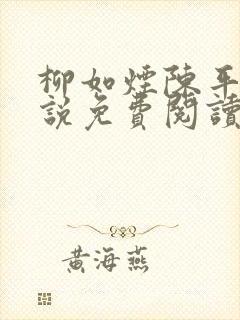 柳如煙陳平
說免費閱讀
黃海燕